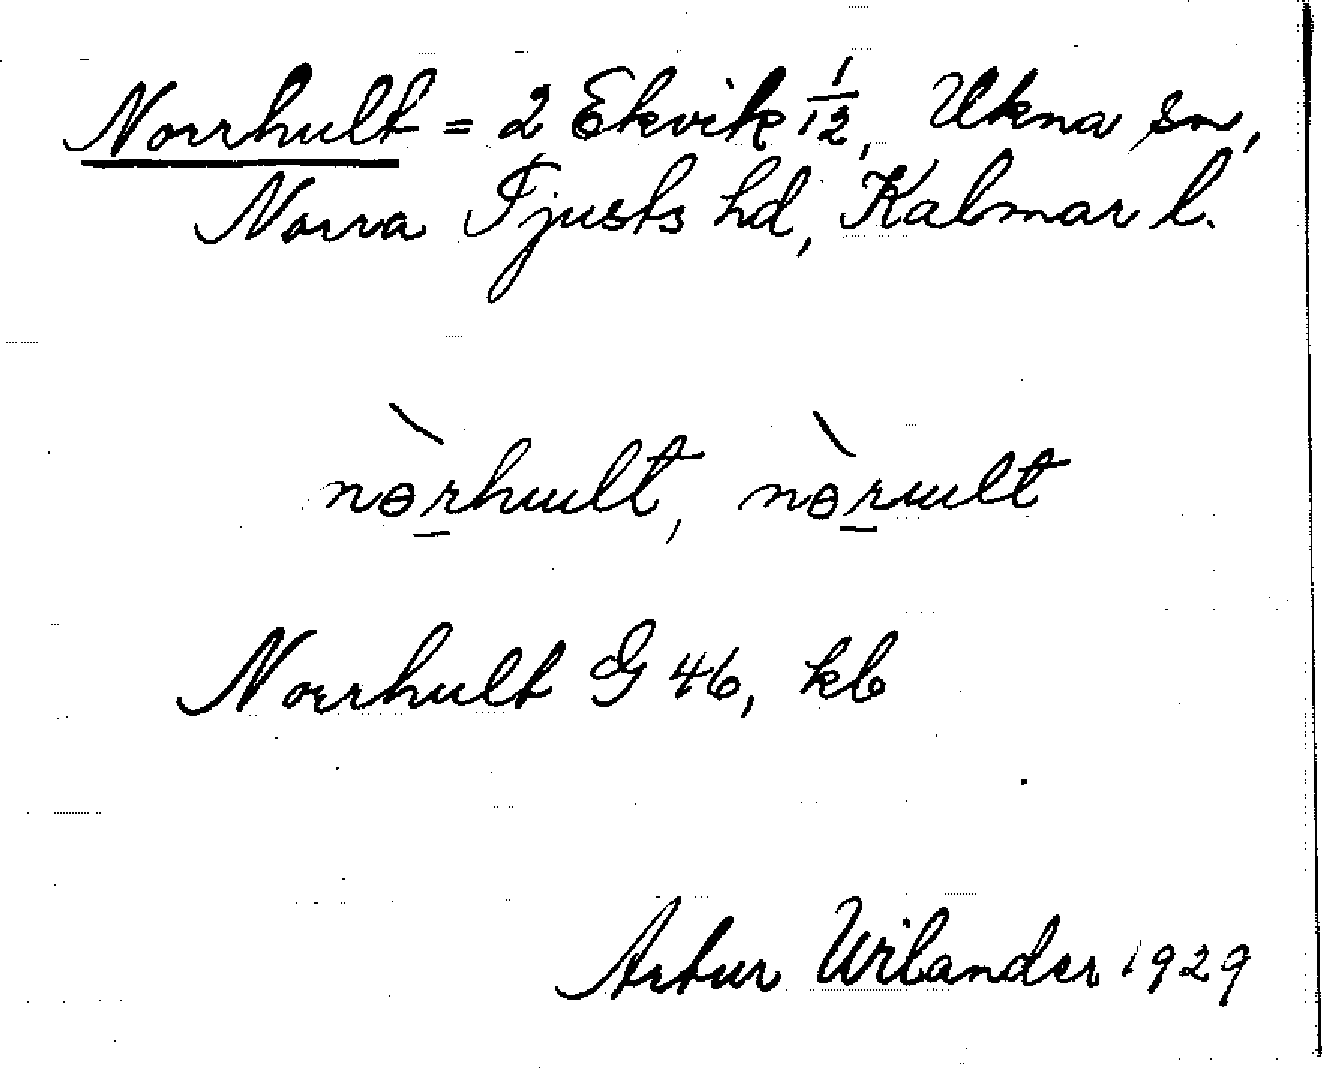 Norrhult = 2 Ekvik 1/12, Ukna sn,
Norra Tjusts hd, Kalmar l.
nɵ̀rhult, nɵ̀rult
Norrhult G 46, kb
Artur Wilander 1929